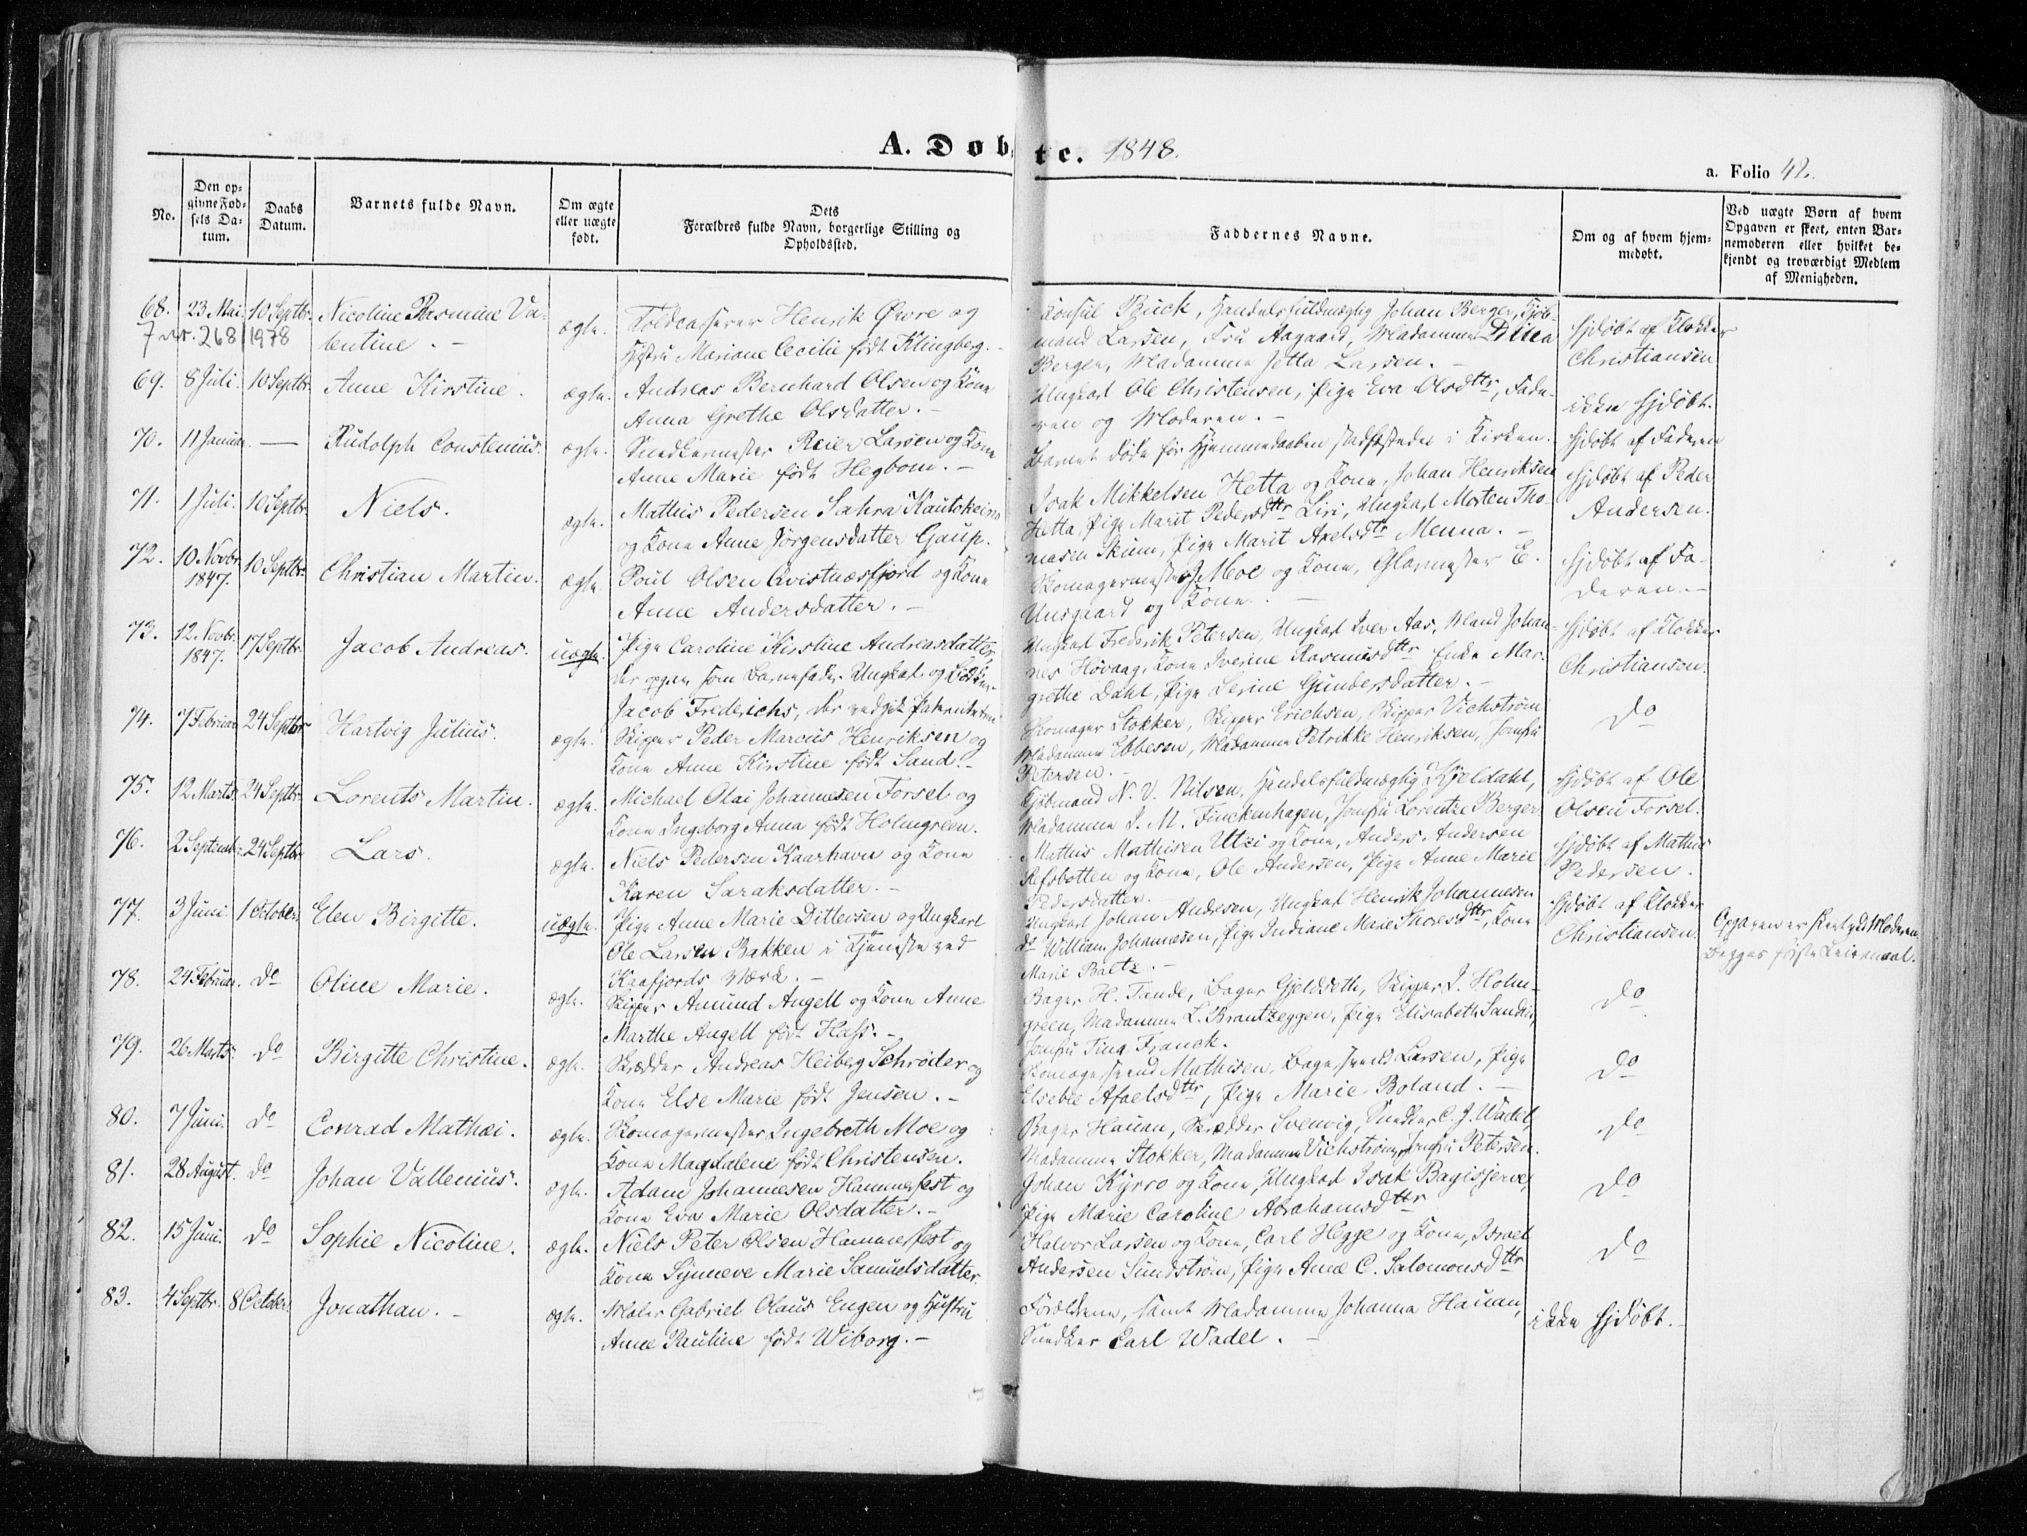 A. Døbte. 1848.
a. Folio 42.
No.
Den opgivne Fødsels Datum.
Daabs Datum.
Barnets fulde Navn.
Om ægte eller uægte født.
Dets Forældres fulde Navn, borgerlige Stilling og Opholdssted.
Faddernes Navne.
Om og af hvem hjemmedøbt.
Ved uægte Børn af hvem Opgaven er skeet, enten Barnemoderen eller hvilket bekjendt og troværdigt Medlem af Menigheden.
68. 23 Mai. 10 Septbr. Nicoline Rasmine Va- ægte. Toldcasserer Henrik Øvre og Konsul Buck, Handelsfuldmægtig Johan Berger, Kjøb- hjdøbt af Klokker
7 nr. 268/1978 lentine. — Hustru Mariane Cecilie født Klingberg. — mand Larsen, Fru Aagaard, Madamme Dina Christiansen
Berger, Madamme Jetta Larsen. —
69. 8 Juli. 10 Septbr. Anne Kirstine. ægte. Andreas Bernhard Olsen og Kone Ungkarl Ole Christensen, Pige Eva Olsdttr, Fade- ikke hjdøbt.
Anna Grethe Olsdatter. — ren og Moderen. —
70. 11 Januar. — Rudolph Constenius. ægte. Snedkermester Reier Larsen og Kone Barnet døde før Hjemmedaaben stadfæstedes i Kirken. hjdøbt af Faderen
Anne Marie født Hegbom. —
71. 1 Juli. 10 Septbr. Niels. ægte. Mathis Pedersen Sahra Kautokeino Isak Mikkelsen Hetta og Kone, Johan Henriksen hjdøbt af Peder
og Kone Anne Jörgensdatter Gaup. Hetta, Pige Marit Pedersdttr Siri, Ungkarl Morten Tho- Andersen.
masen Skum, Pige Marit Axelsdttr Menna. —
72. 10 Novbr. 1847. 10 Septbr. Christian Martin. ægte. Poul Olsen Qvistnæsfjord og Kone Skomagermester J Moe og Kone, Glarmester E. hjdøbt af Fa-
Anne Andersdatter. — Unsgaard og Kone. — deren. —
73. 12 Novbr. 1847. 17 Septbr. Jacob Andreas. uægte. Pige Caroline Kirstine Andreasdatter Ungkarl Frederik Petersen, Ungkarl Iver Aas, Mand Johan- hjdøbt af Klokker
der opgav som Barnefader Ungkarl og nes Høvaag, Kone Iverine Rasmusdttr Enke Mar- Christiansen.
Jacob Frederichs, der vedgik Paterniteten grethe Dahl, Pige Serine Gundersdatter. —
74. 7 Februar 24 Septbr Hartvig Julius. ægte. Skipper Peder Marcus Henriksen og Skomager Stokker, Skipper Erichsen, Skipper Vichstrøm do
Kone Anne Kirstine født Sand. — Madamme Ebbesen, Madamme Petrikke Henriksen, Jomfru
Petersen. —
75. 12 Marts. 24 Septbr. Lorents Martin. ægte. Michael Olai Johannesen Forsel og Kjøbmand N. V. Nilsen, Handelsfuldmægtig Kjeldahl, hjdøbt af Ole
Kone Ingeborg Anna født Holmgreen. Madamme I. M. Finckenhagen, Jomfru Lorentze Berger Olsen Forsel.
76. 2 Septembr. 24 Septbr. Lars. ægte. Niels Pedersen Kaarhavn og Kone Mathis Mathisen Utzi og Kone, Anders Andersen hjdøbt af Mathis
Karen Saraksdatter. — Refsbotten og Kone, Ole Andersen, Pige Anne Marie Pedersen.
Pedersdatter. —
77. 3 Juni. 1 October. Elen Birgitte. uægte. Pige Anne Marie Ditlevsen og Ungkarl Ungkarl Johan Andresen, Ungkarl Henrik Johannesen hjdøbt af Klokker Opgaven er skeet ved Moderen.
Ole Larsen Bakken i Tjeneste ved do William Johannesen, Pige Indiane Marie Thoresdttr, Kone Christiansen. Begges første Leiermaal.
Kaafjords Værk. — Marie Baltz. —
78. 24 Februar. do Oline Marie. ægte. Skipper Amund Angell og Kone Anne Bager H. Tande, Bager Gjeldseth, Skipper I. Holm- do
Marthe Angell født Hass. — green, Madamme L. Brantzeggen, Pige Elisabeth Sandin,
Jomfru Tina Franck.
79. 26 Marts. do Birgitte Christine. ægte. Skrædder Andreas Heiberg Schrøder og Skomagersvend Mathisen, Bagersvend Larsen, Pige do
Kone Else Marie født Jensen. — Elsebe Afaelsdttr, Pige Marie Boland. —
80. 7 Juni. do Conrad Mathæi. ægte. Skomagermester Ingebreth Moe og Bager Hauan, Skrædder Svenvig, Snedker C. J. Wadel, do
Kone Magdalene født Christensen. Madamme Stokker, Madamme Vichstrøm, Jomfru Petersen.
81. 28 August. do Johan Vallenius. ægte. Adam Johannesen Hammerfest og Johan Kyrro og Kone, Ungkarl Isak Bagisjerve, do
Kone Eva Marie Olsdatter. — Pige Marie Caroline Abrahamsdttr
82. 15 Juni. do Sophie Nicoline. ægte. Niels Peter Olsen Hammerfest og Halvor Larsen og Kone, Carl Hegge og Kone, Israel do
Kone Synneve Marie Samuelsdatter. Andersen Sundstrøm, Pige Anne C. Salomonsdttr
83. 4 Septbr. 8 October. Jonathan. — ægte. Maler Gabriel Olaus Engen og Hustru Forældrene, samt Madamme Johanna Hauan, ikke hjdøbt. —
Anne Pauline født Wiborg. — Snedker Carl Wadel. —